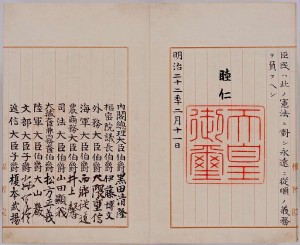 臣民ハ此ノ憲法ニ對シ永遠ニ從順ノ義務
ヲ負フヘシ
睦仁
天皇
御璽
明治二十二年二月十一日
內閣總理大臣伯爵黑田淸隆
樞密院議長伯爵伊藤博文
外務大臣伯爵大隈重信
海軍大臣伯爵西鄕從道
農商務大臣伯爵井上馨
司法大臣伯爵山田顯義
大藏大臣兼內務大臣伯爵松方正義
陸軍大臣伯爵大山巖
文部大臣子爵森有禮
遞信大臣子爵榎本武揚